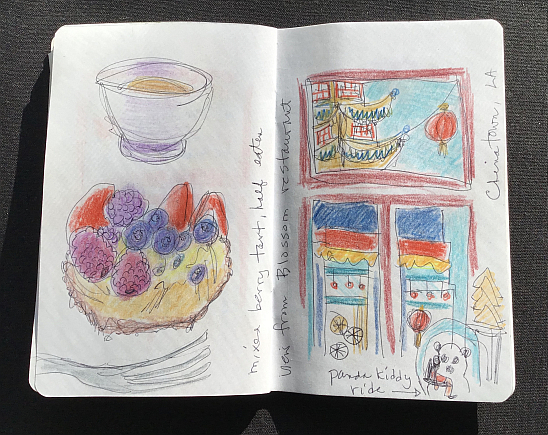 mixed berry tart, half eaten
View from Blossom restaurant
Chinatown, LA
panda kiddy
ride